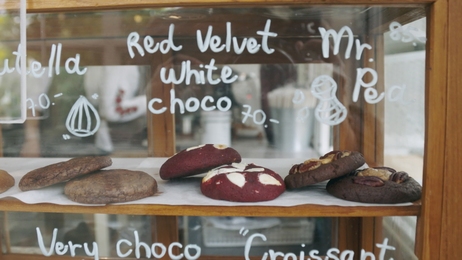 utella
70.-
Red Velvet
white
choco 70.-
Mr.
Very choco
"Croissant